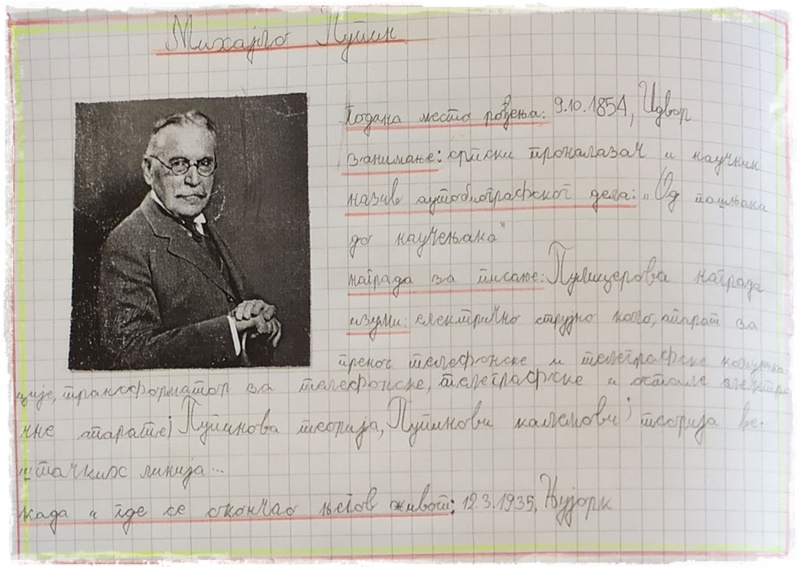 Михајло Пупин
Година место рођења: 9.10.1854, Идвор
занимање: српски проналазач и научник
назив аутобиографског дела: „Од пашњака
до научењака"
награда за писање: Пулицерова награда
изуми: електрично струјно коло, апарат за
пренос телефонске и телеграфске комуника
ције, трансформатор за телефонске, телеграфске и остале електри
чне апарате; Пупинова теорија, Пупинови калемови; теорија ве
штачких линија...
када и где се окончао његов живот: 12.3.1935, Њујорк